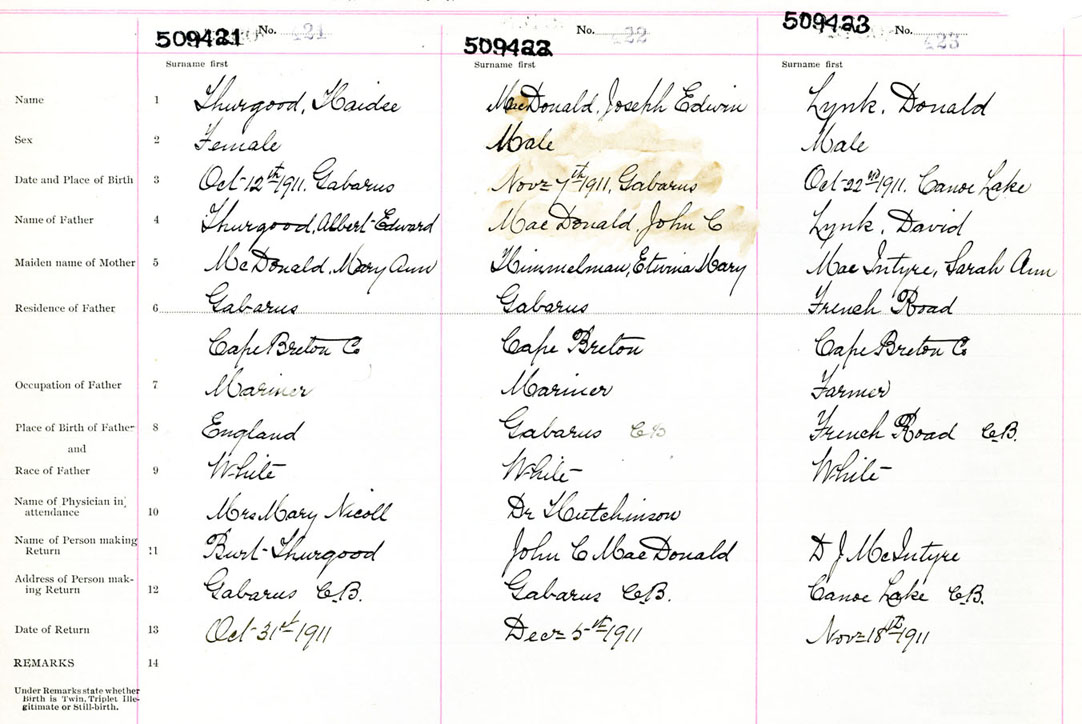 509421 No. 421
509422 No. 422
509423 No. 423
Surname first Surname first Surname first
Name 1 Thurgood, Haidee MacDonald, Joseph Edwin Lynk, Donald
Sex 2 Female Male Male
Date and Place of Birth 3 Oct 12th 1911, Gabarus Nov= 7th 1911, Gabarus Oct 22nd 1911, Canoe Lake
Name of Father 4 Thurgood, Albert Edward MacDonald, John C Lynk, David
Maiden name of Mother 5 McDonald, Mary Ann Himmelman, Mary MacIntyre, Sarah Ann
Residence of Father 6 Gabarus Gabarus French Road
Cape Breton Co Cape Breton Cape Breton Co
Occupation of Father 7 Mariner Mariner Farmer
Place of Birth of Father 8 England Gabarus C B French Road C.B.
and
Race of Father 9 White White White
Name of Physician in
attendance 10 Mrs Mary Nicoll Dr Hutchinson
Name of Person making
Return 11 Burt Thurgood John C MacDonald D J McIntyre
Address of Person mak-
ing Return 12 Gabarus C.B. Gabarus C.B. Canoe Lake C.B.
Date of Return 13 Oct 31st 1911 Dec= 5th 1911 Nov= 18th 1911
REMARKS 14
Under Remarks state whether
Birth is Twin, Triplet Ille-
gitimate or Still-birth.